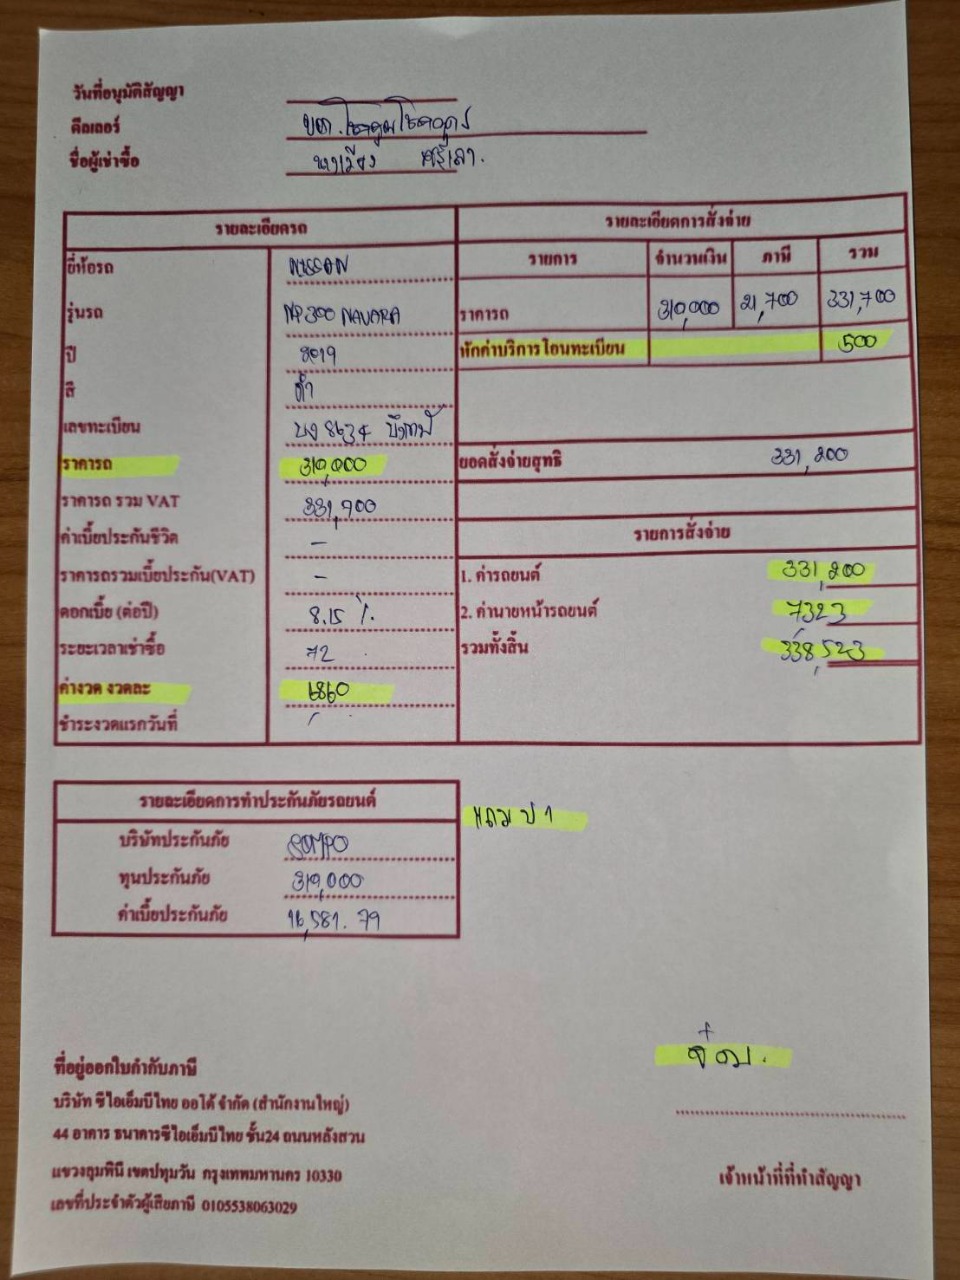 วันที่อนุมัติสัญญา
ดีลเลอร์
ชื่อผู้เช่าซื้อ
รายละเอียดรถ
รายละเอียดการสั่งจ่าย
รายการ จำนวนเงิน ภาษี รวม
ยี่ห้อรถ NISSAN
รุ่นรถ NP300 NAVARA
ราคารถ 310,000 21,700 331,700
ปี 2019
หักค่าบริการโอนทะเบียน 500
สี ดำ
เลขทะเบียน 8634 บึงกาฬ
ราคารถ 310,000
ยอดสั่งจ่ายสุทธิ 331,200
ราคารถ รวม VAT 331,700
ค่าเบี้ยประกันชีวิต -
รายการสั่งจ่าย
ราคารถรวมเบี้ยประกัน(VAT) -
1. ค่ารถยนต์ 331,200
ดอกเบี้ย (ต่อปี) 8.15 %
2. ค่านายหน้ารถยนต์ 7323
ระยะเวลาเช่าซื้อ 72
รวมทั้งสิ้น 338,523
ค่างวด งวดละ 6860
ชำระงวดแรกวันที่
รายละเอียดการทำประกันภัยรถยนต์
แถม ป 1
บริษัทประกันภัย SOMPO
ทุนประกันภัย 310,000
ค่าเบี้ยประกันภัย 16,581.79
ที่อยู่ออกใบกำกับภาษี
บริษัท ซีไอเอ็มบีไทย ออโต้ จำกัด (สำนักงานใหญ่)
44 อาคาร ธนาคารซีไอเอ็มบีไทย ชั้น24 ถนนหลังสวน
แขวงลุมพินี เขตปทุมวัน กรุงเทพมหานคร 10330
เลขที่ประจำตัวผู้เสียภาษี 0105538063029
เจ้าหน้าที่ที่ทำสัญญา